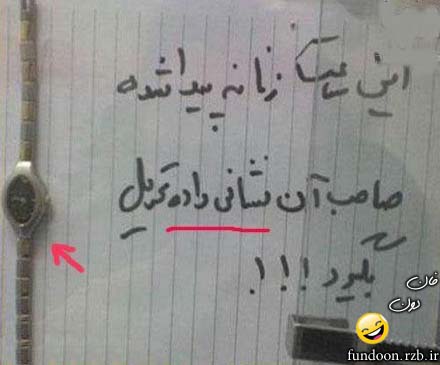 این ساعت زنانه پیدا شده
صاحب آن نشانی داده تحویل
بگیرد !!!
فان دون
fundoon.rzb.ir